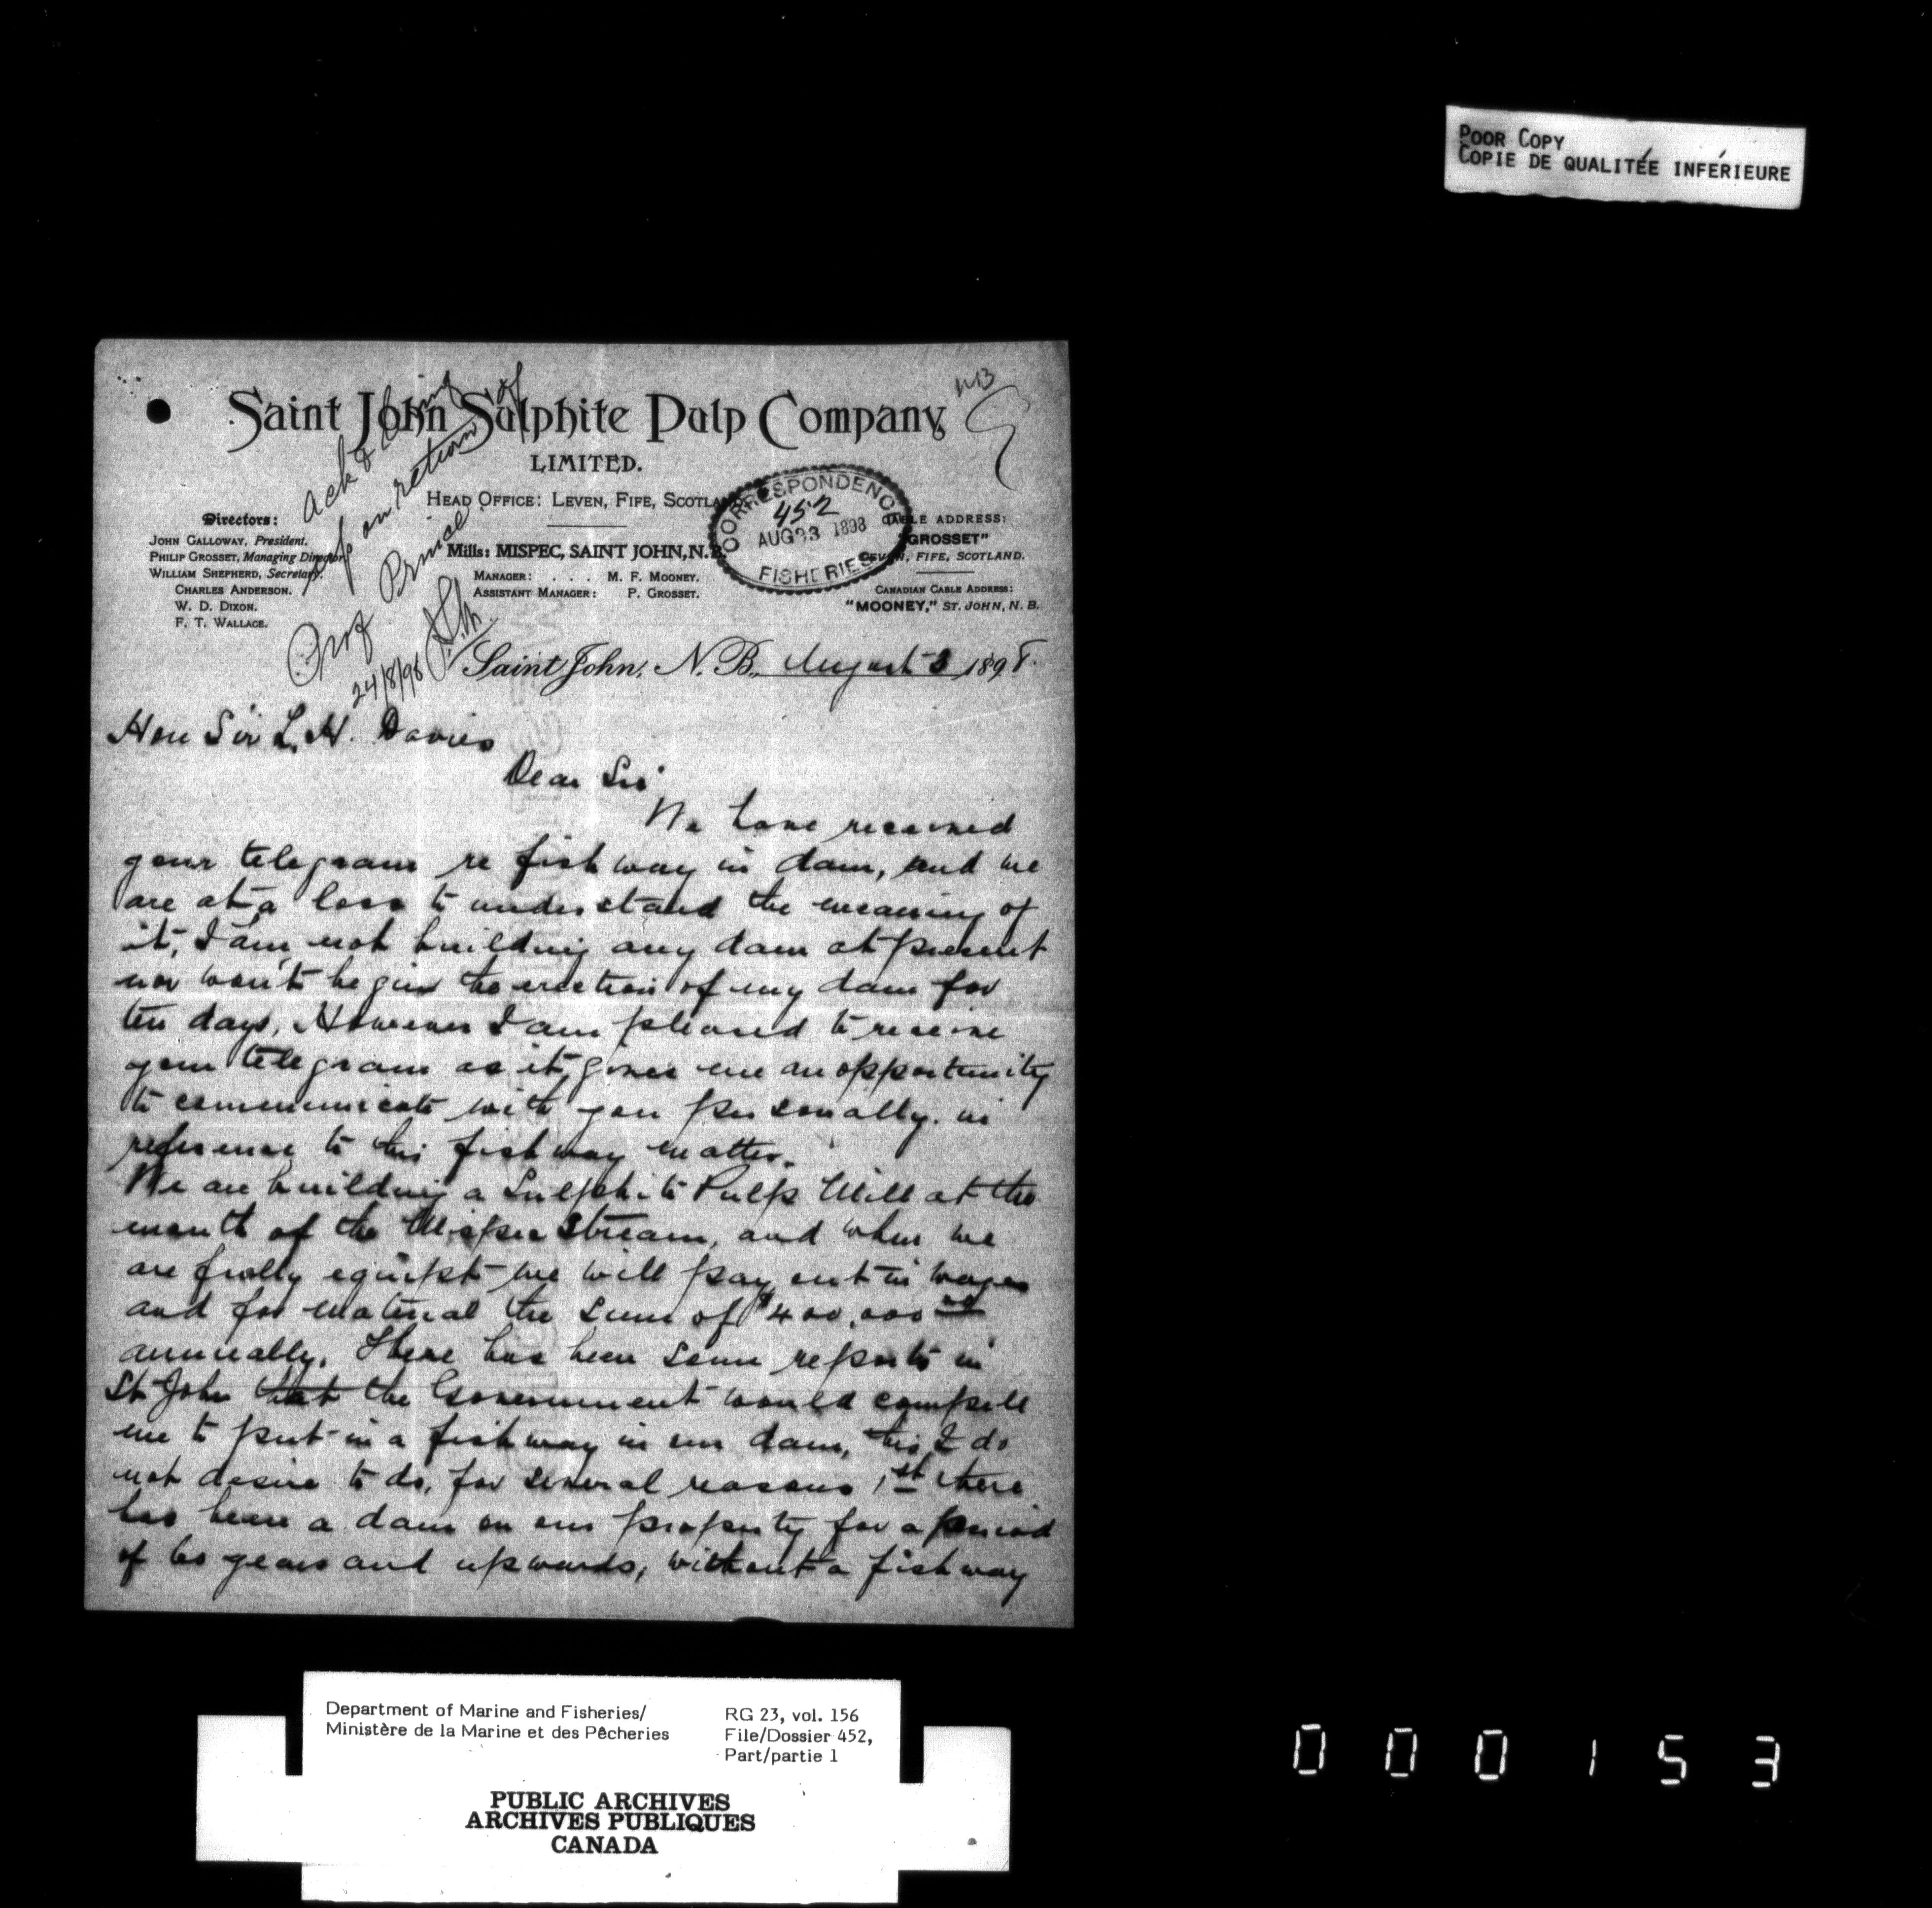 POOR COPY
COPIE DE QUALITÉE INFÉRIEURE
NB
Saint John Sulphite Pulp Company,
LIMITED.
HEAD OFFICE: LEVEN, FIFE, SCOTLAND
Mills: MISPEC, SAINT JOHN, N.B.
MANAGER: . . . M. F. MOONEY.
ASSISTANT MANAGER: P. GROSSET.
Directors:
JOHN GALLOWAY, President.
PHILIP GROSSET, Managing Director
WILLIAM SHEPHERD, Secretary.
CHARLES ANDERSON.
W. D. DIXON.
F. T. WALLACE.
CORRESPONDENCE
452
AUG 23 1898
FISHERIES
CABLE ADDRESS:
"GROSSET"
LEVEN, FIFE, SCOTLAND.
CANADIAN CABLE ADDRESS:
"MOONEY," ST. JOHN, N. B.
Ack &
on return of
Prof Prince
24/8/98
Saint John, N. B., August 3 1898.
Hon Sir L. H. Davies
Dear Sir
We have received
your telegram re fishway in dam, and we
are at a loss to understand the meaning of
it, I am not building any dam at present
nor won't begin the erection of my dam for
ten days, However I am pleased to receive
your telegram as it gives me an opportunity
to communicate with you personally. in
reference to this fishway matter.
We are building a Sulphite Pulp Mill at the
mouth of the Mispec Stream, and when we
are fully equipt we will pay out in wages
and for material the sum of $400,000 00
annually. There has been some reports in
St John that the Government would compell
me to put in a fishway in our dam, this I do
not desire to do, for several reasons 1st there
has been a dam on our property for a period
of 60 years and upwards, without a fishway
Department of Marine and Fisheries/
Ministère de la Marine et des Pêcheries
RG 23, vol. 156
File/Dossier 452,
Part/partie 1
PUBLIC ARCHIVES
ARCHIVES PUBLIQUES
CANADA
000153